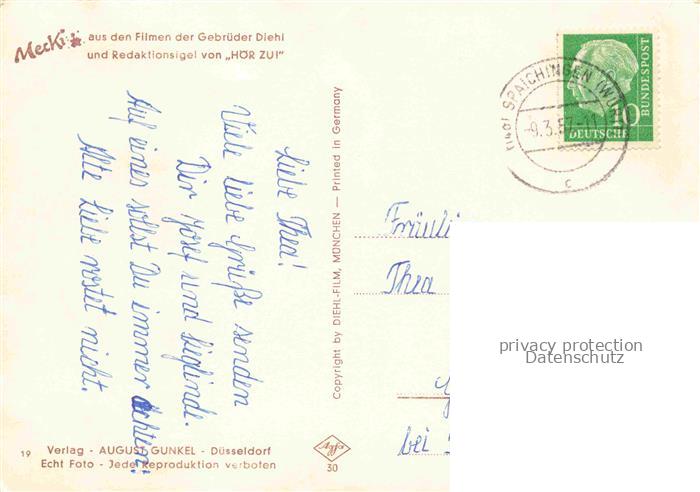 Mecki aus den Filmen der Gebrüder Diehl
und Redaktionsigel von „HÖR ZU!"
Liebe Thea!
Viele liebe Grüße senden
Dir Josef und Sieglinde.
Auf eines sollst Du immer achten:
Alte Liebe rostet nicht.
Copyright by DIEHL-FILM, MÜNCHEN — Printed in Germany
SPAICHINGEN
-9.3.57-11
c
10
DEUTSCHE
BUNDESPOST
Thea
bei
privacy protection
Datenschutz
19 Verlag - AUGUST GUNKEL - Düsseldorf
Echt Foto - Jede Reproduktion verboten
Agfa
30